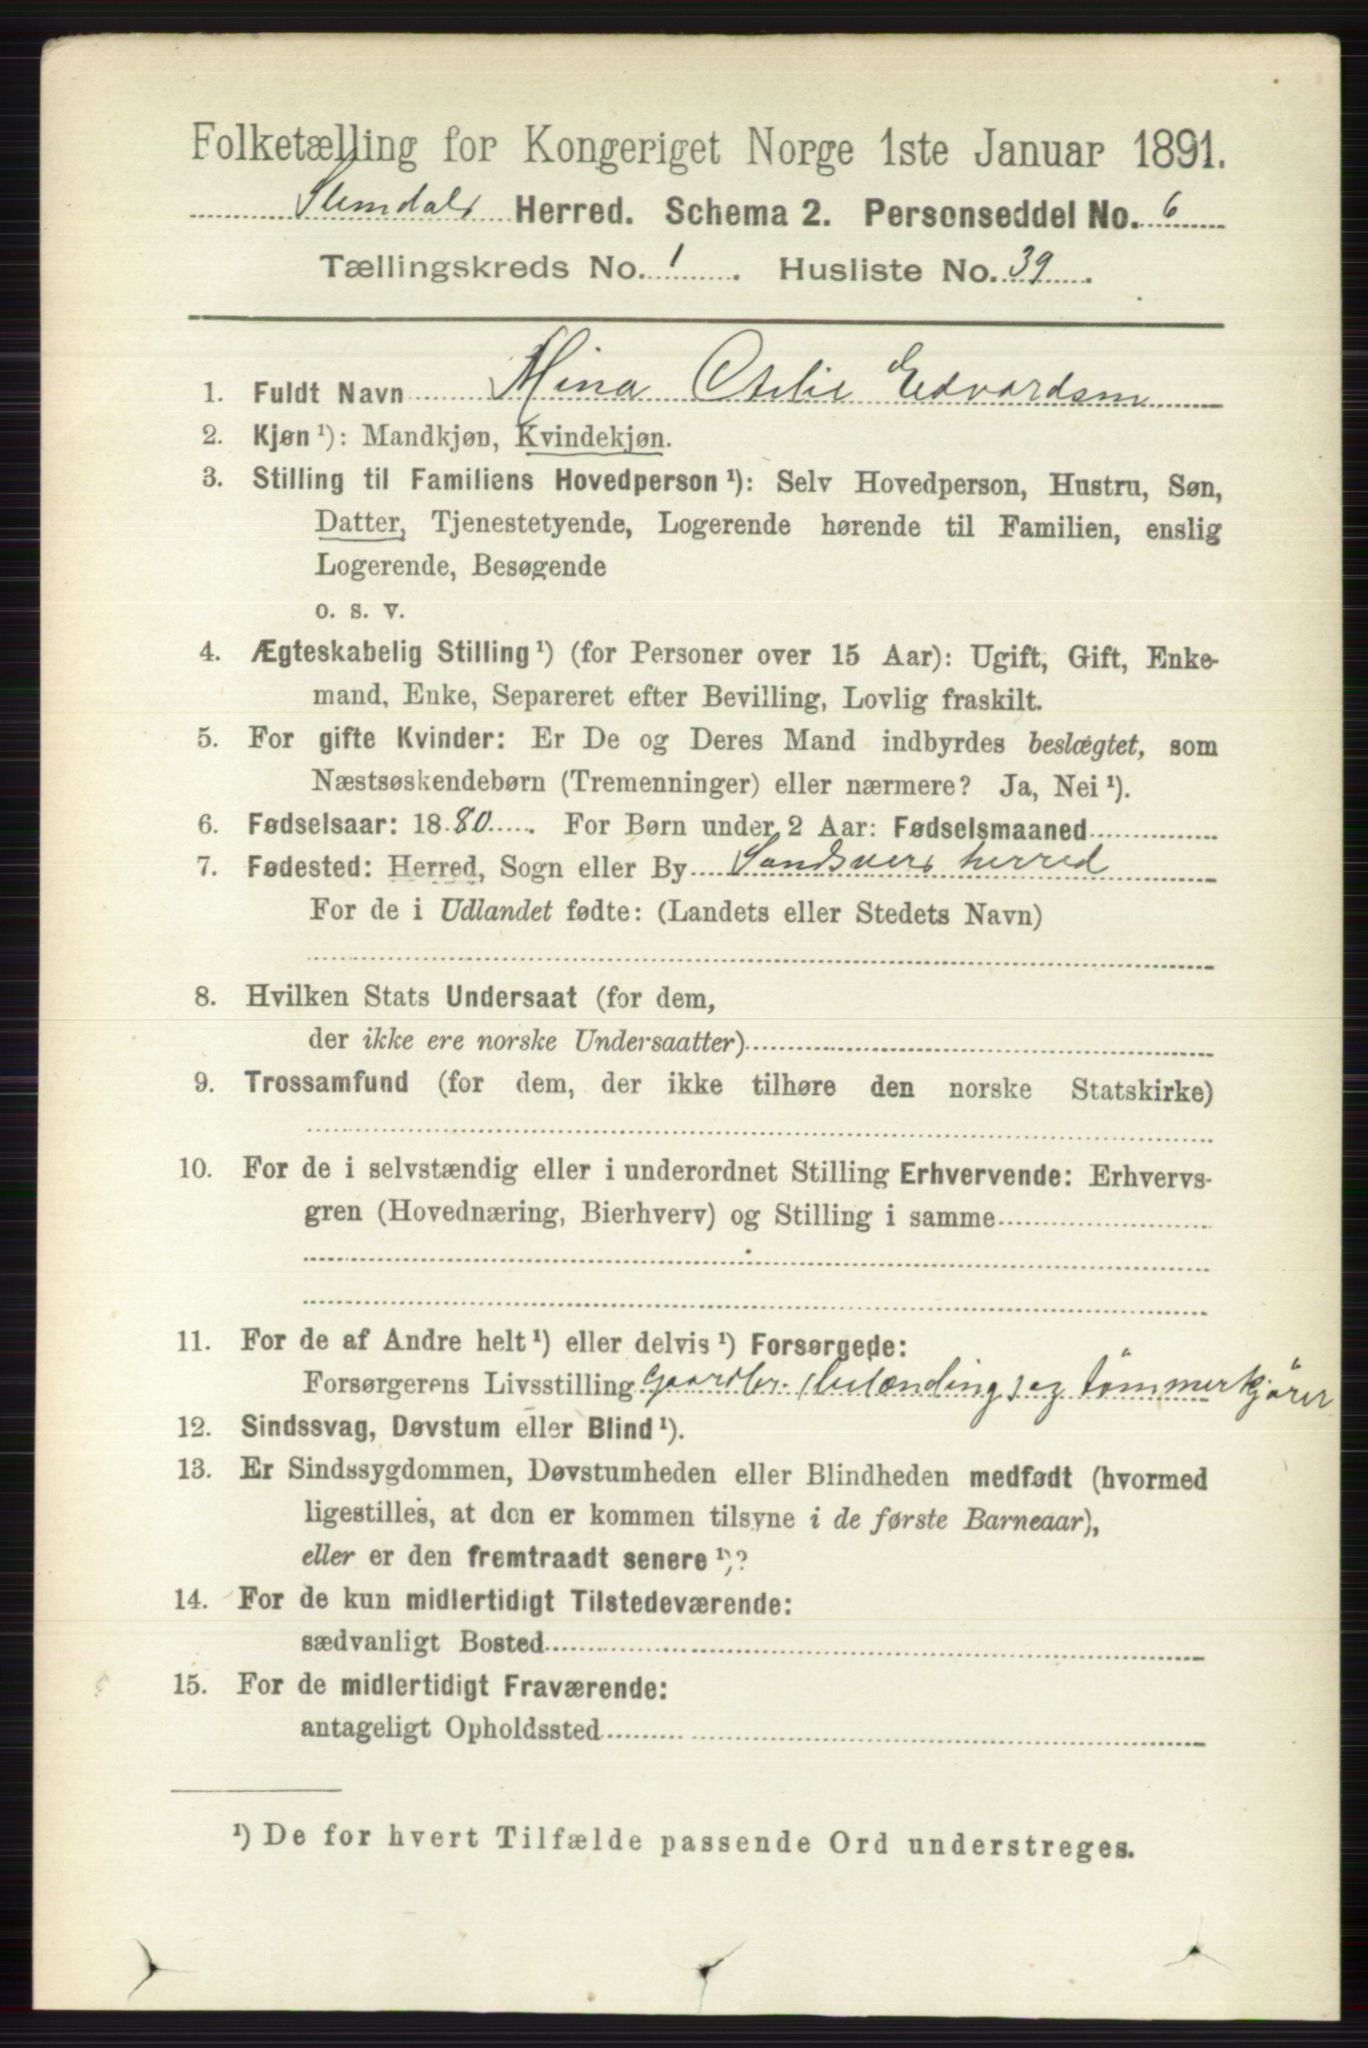 Folketælling for Kongeriget Norge 1ste Januar 1891.
Slemdals Herred. Schema 2. Personseddel No. 6
Tællingskreds No. 1. Husliste No. 39.
1. Fuldt Navn Mina Otelie Edvardsen
2. Kjøn ¹): Mandkjøn, Kvindekjøn.
3. Stilling til Familiens Hovedperson ¹): Selv Hovedperson, Hustru, Søn,
Datter, Tjenestetyende, Logerende hørende til Familien, enslig
Logerende, Besøgende
o. s. v.
4. Ægteskabelig Stilling ¹) (for Personer over 15 Aar): Ugift, Gift, Enke-
mand, Enke, Separeret efter Bevilling, Lovlig fraskilt.
5. For gifte Kvinder: Er De og Deres Mand indbyrdes beslægtet, som
Næstsøskendebørn (Tremenninger) eller nærmere? Ja, Nei ¹).
6. Fødselsaar: 1880. For Børn under 2 Aar: Fødselsmaaned
7. Fødested: Herred, Sogn eller By Sandsvers herred
For de i Udlandet fødte: (Landets eller Stedets Navn)
8. Hvilken Stats Undersaat (for dem,
der ikke ere norske Undersaatter)
9. Trossamfund (for dem, der ikke tilhøre den norske Statskirke)
10. For de i selvstændig eller i underordnet Stilling Erhvervende: Erhvervs-
gren (Hovednæring, Bierhverv) og Stilling i samme
11. For de af Andre helt ¹) eller delvis ¹) Forsørgede:
Forsørgerens Livsstilling Gaardbr. (leilænding) og tömmerkjörer
12. Sindssvag, Døvstum eller Blind ¹).
13. Er Sindssygdommen, Døvstumheden eller Blindheden medfødt (hvormed
ligestilles, at den er kommen tilsyne i de første Barneaar),
eller er den fremtraadt senere ¹)?
14. For de kun midlertidigt Tilstedeværende:
sædvanligt Bosted
15. For de midlertidigt Fraværende:
antageligt Opholdssted
¹) De for hvert Tilfælde passende Ord understreges.